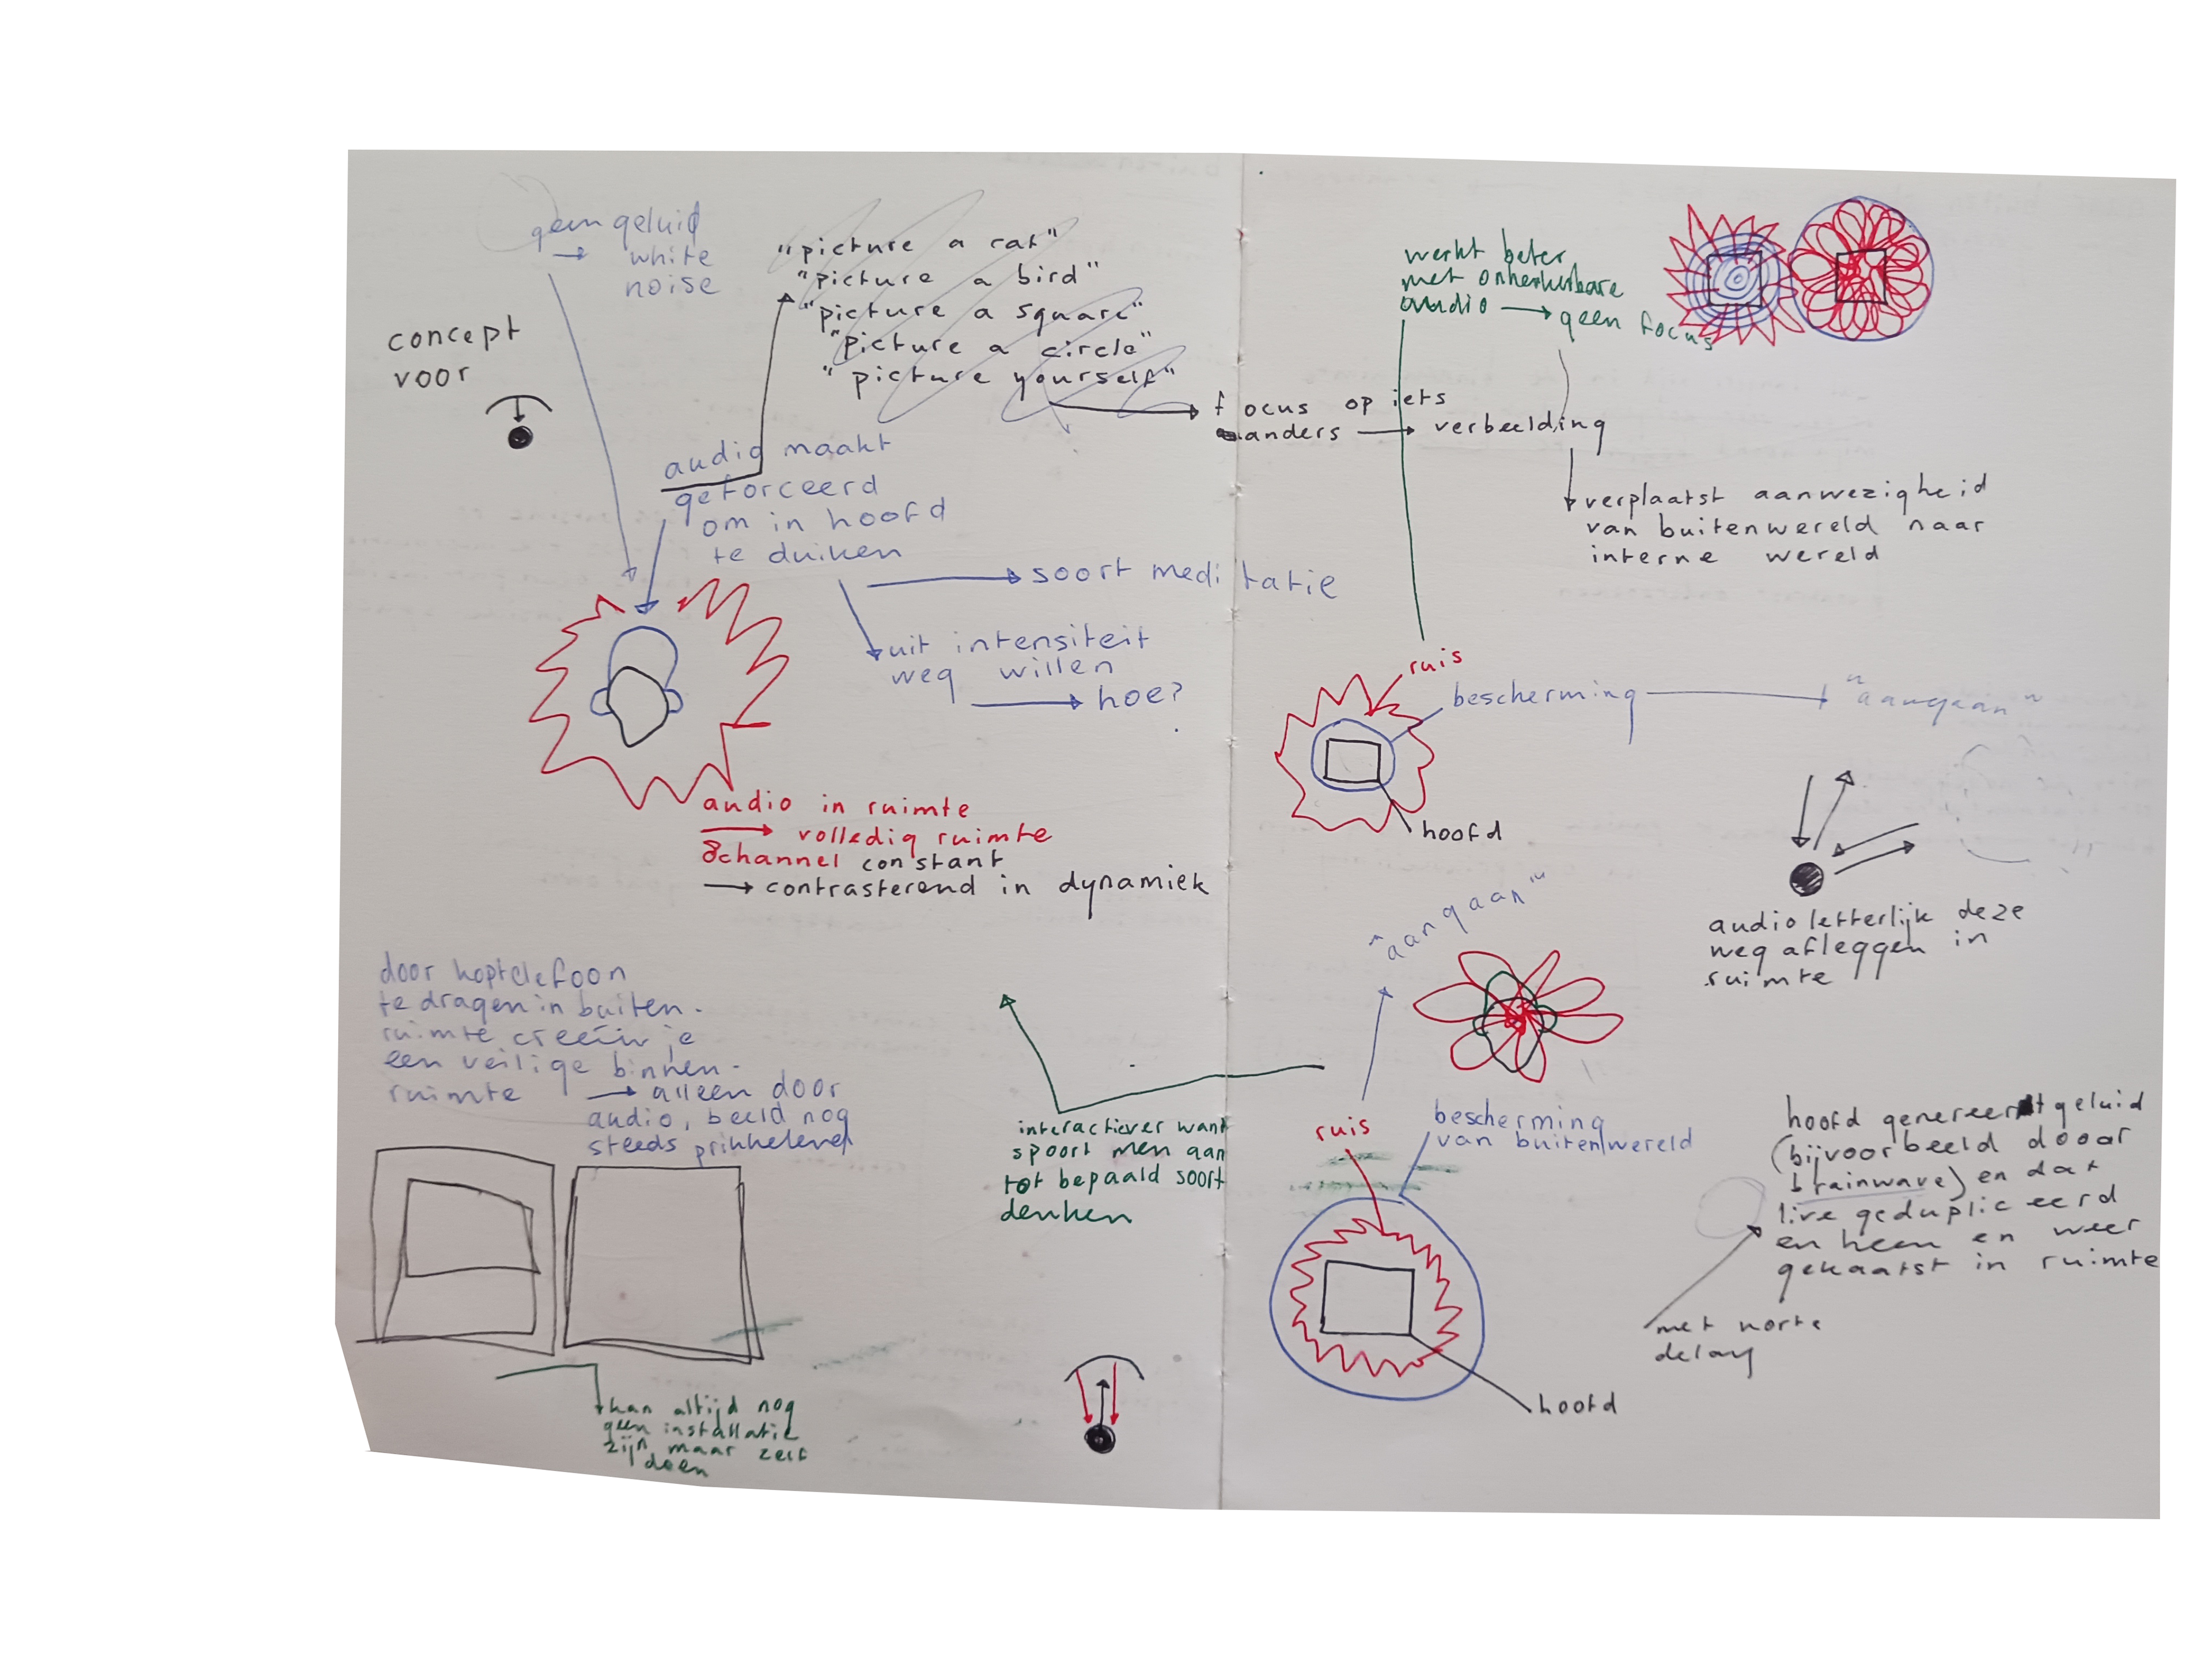 geen geluid
→ white
noise
concept
voor
"picture a cat"
"picture a bird"
"picture a square"
"picture a circle"
"picture yourself"
focus op iets
anders → verbeelding
verplaatst aanwezigheid
van buitenwereld naar
interne wereld
audio maakt
geforceerd
om in hoofd
te duiken
soort meditatie
uit intensiteit
weg willen
→ hoe?
audio in ruimte
→ volledig ruimte
8channel constant
→ contrasterend in dynamiek
door koptelefoon
te dragen in buiten-
ruimte creëer je
een veilige binnen-
ruimte → alleen door
audio, beeld nog
steeds prikkelend
kan altijd nog
geen installatie
zijn maar zelf
doen
interactiever want
spoort men aan
tot bepaald soort
denken
werkt beter
met onherkenbare
audio → geen focus
ruis
bescherming → "aangaan"
hoofd
audio letterlijk deze
weg afleggen in
ruimte
"aangaan"
ruis
bescherming
van buitenwereld
hoofd
hoofd genereert geluid
(bijvoorbeeld dooor
brainwave) en dat
live gedupliceerd
en heen en weer
gekaatst in ruimte
met korte
delay